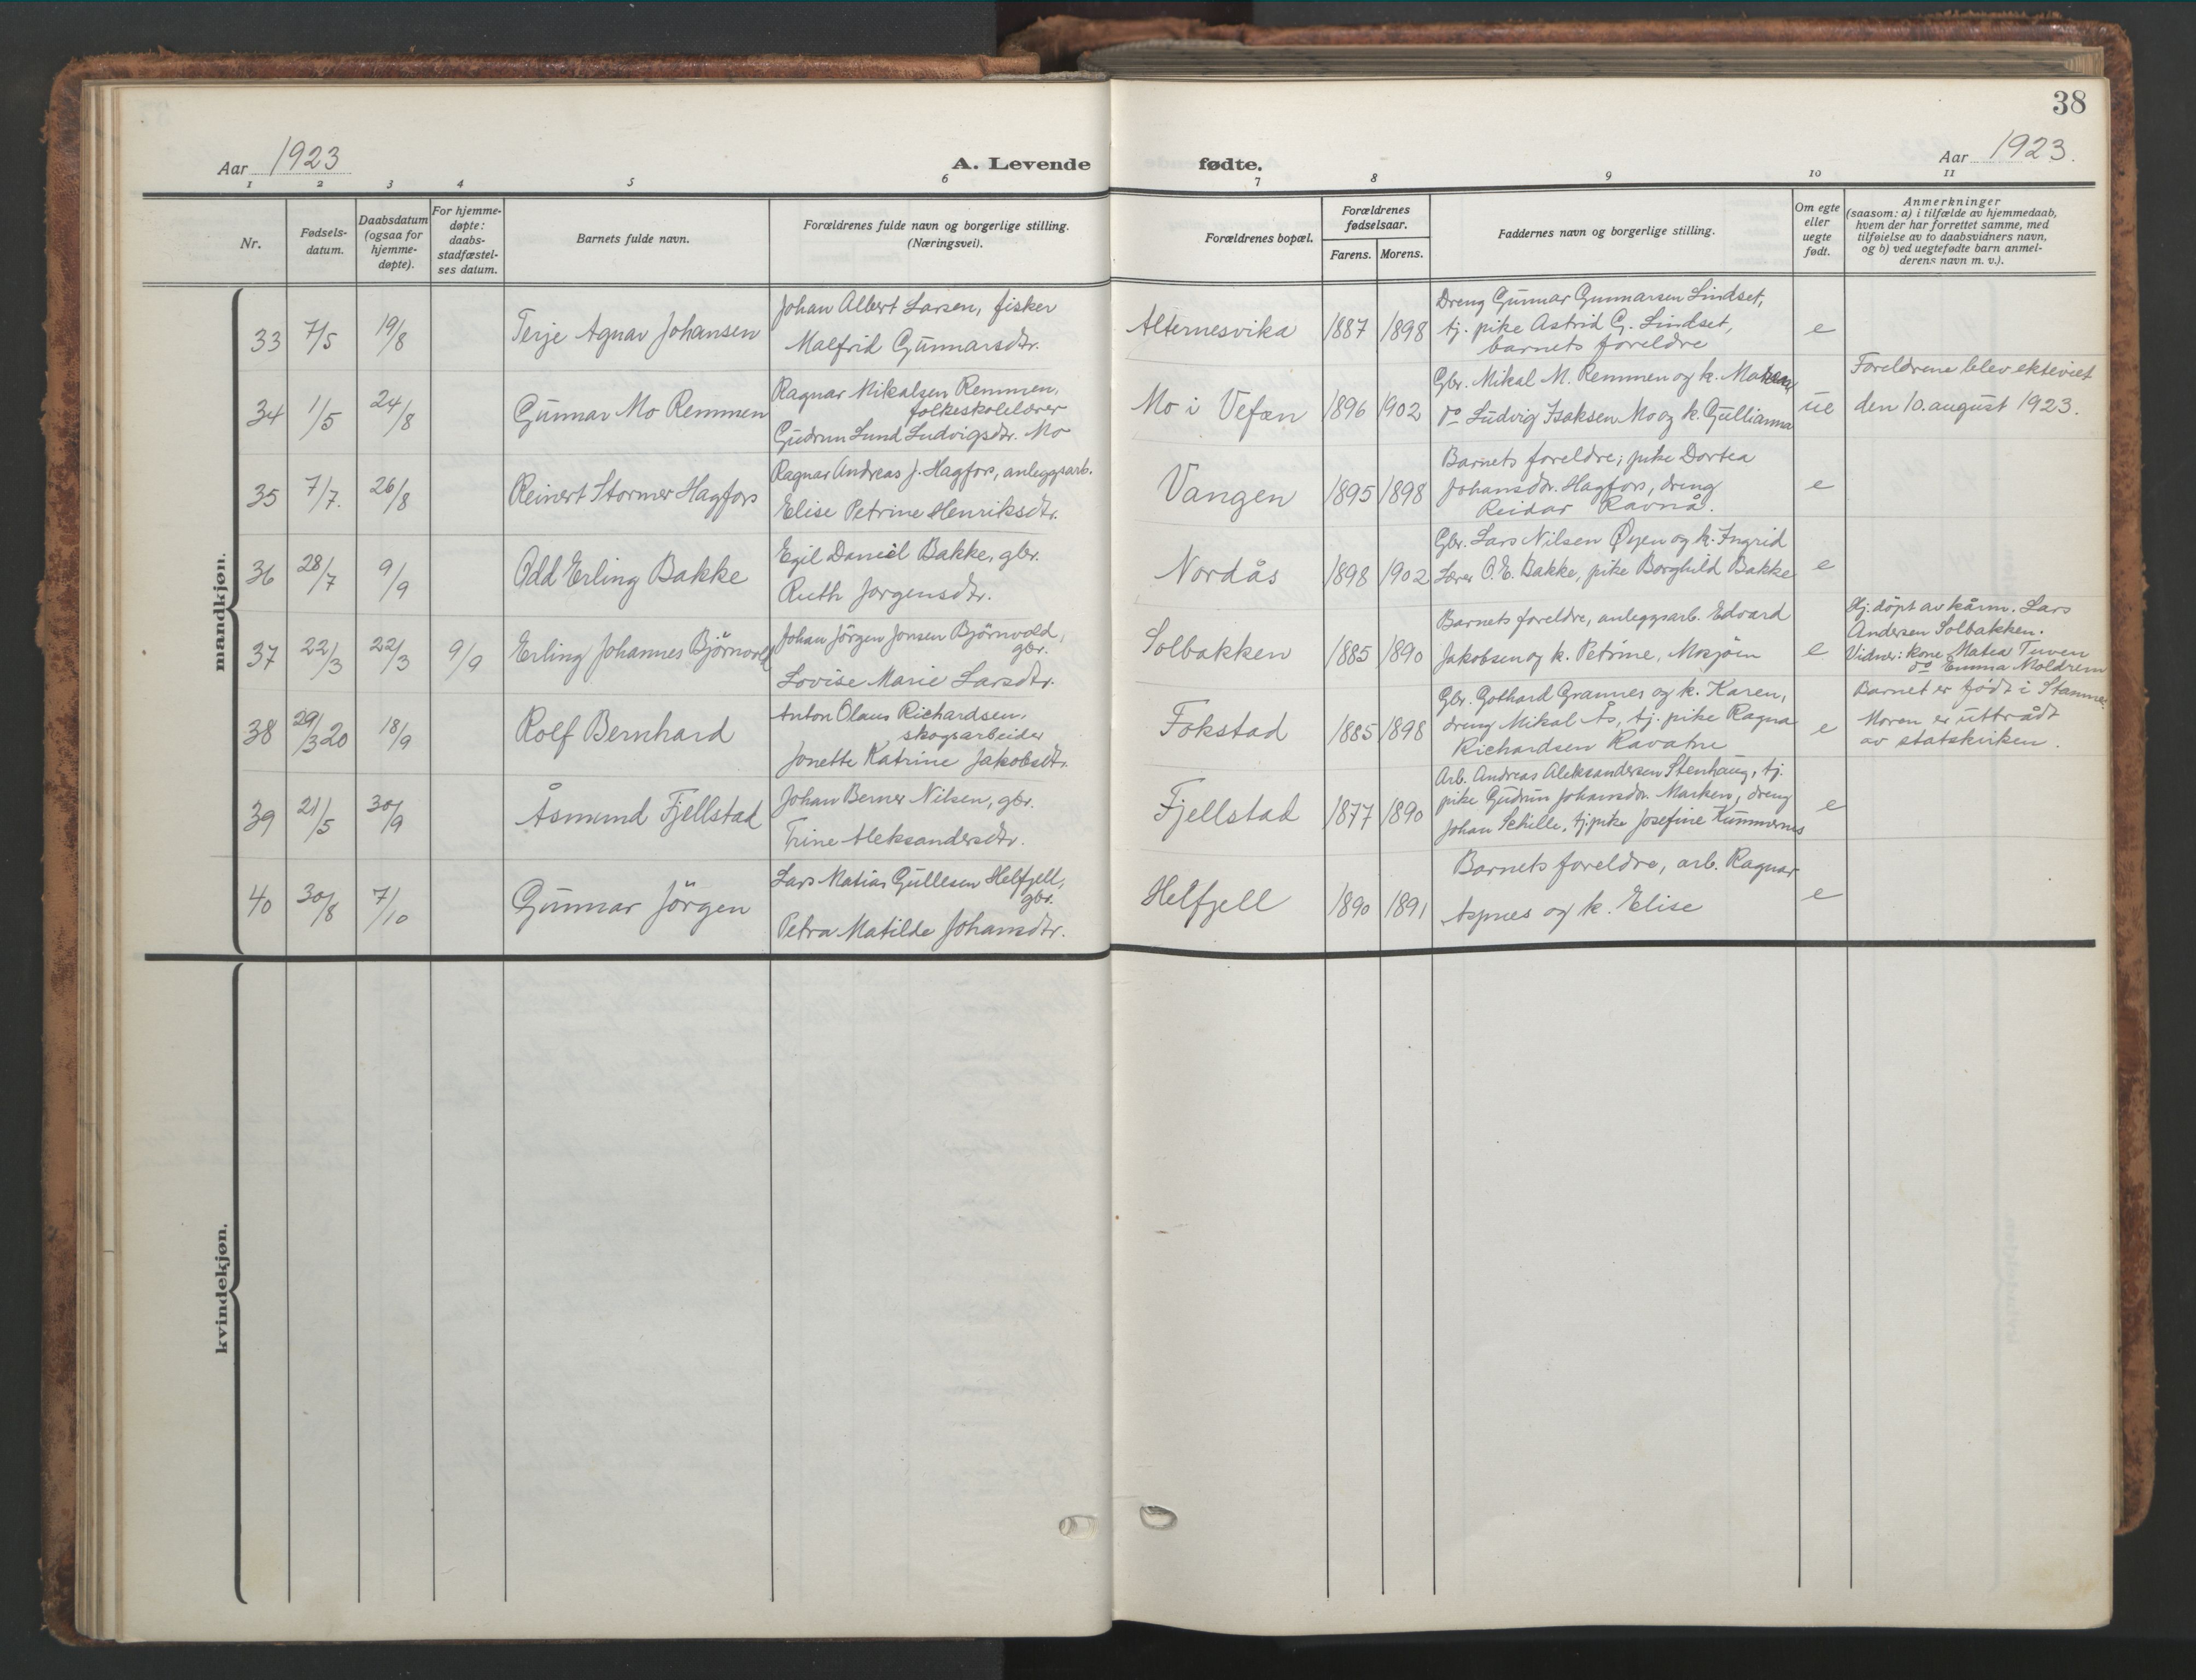 38
Aar 1923
A. Levende fødte.
Aar 1923.
1 2 3 4 5 6 7 8 9 10 11
Nr.
Fødsels-
datum.
Daabsdatum
(ogsaa for
hjemme-
døpte).
For hjemme-
døpte:
daabs-
stadfæstel-
ses datum.
Barnets fulde navn.
Forældrenes fulde navn og borgerlige stilling.
(Næringsvei).
Forældrenes bopæl.
Forældrenes
fødselsaar.
Farens. Morens.
Faddernes navn og borgerlige stilling.
Om egte
eller
uegte
født.
Anmerkninger
(saasom: a) i tilfælde av hjemmedaab,
hvem der har forrettet samme, med
tilføielse av to daabsvidners navn,
og b) ved uegtefødte barn anmel-
derens navn m. v.).
mandkjøn.
33 7/5 19/8 Terje Agnar Johansen
Johan Albert Larsen, fisker
Malfrid Gunnarsdtr.
Alternesvika 1887 1898
Dreng Gunnar Gunnarsen Lindset,
tj. pike Astrid G. Lindset,
barnets foreldre
e
34 1/5 24/8 Gunnar Mo Remmen
Ragnar Mikalsen Remmen,
folkeskolelærer
Gudrun Lund Ludvigsdtr. Mo
Mo i Vefsn 1896 1902
Gbr. Mikal M. Remmen og k. Maren
do Ludvig Isaksen Mo og k. Gullianna
ue
Foreldrene blev ekteviet
den 10. august 1923.
35 7/7. 26/8 Reinert Stormer Hagfors
Ragnar Andreas J. Hagfors, anleggsarb.
Elise Petrine Henriksdtr.
Vangen 1895 1898
Barnets foreldre; pike Dortea
Johansdtr. Hagfors, dreng
Reidar Ravnå.
e
36 28/7 9/9 Odd Erling Bakke
Egil Daniel Bakke, gbr.
Ruth Jorgensdtr.
Nordås 1898 1902
Gbr. Lars Nilsen Øyen og k. Ingrid
Lærer O. E. Bakke, pike Borghild Bakke
e
37 22/3 22/3 9/9 Erling Johannes Björnvold
Johan Jörgen Jonsen Björnvold,
gbr.
Lovise Marie Larsdtr.
Solbakken 1885 1890
Barnets foreldre, anleggsarb. Edvard
Jakobsen og k. Petrine, Mosjöen
e
Hj. döpt av kårm. Lars
Andersen Solbakken.
Vidner: kone Matea Tuven
do Emma Moldrem
38 29/3 20 18/9 Rolf Bernhard
Anton Olaus Richardsen,
skogsarbeider
Jonette Katrine Jakobsdtr.
Fokstad 1885 1898
Gbr. Gothard Grannes og k. Karen,
dreng Mikal Ås, tj. pike Ragna
Richardsen Ravatne
e
Barnet er födt i Stamnes.
Moren er uttrådt
av statskirken.
39 21/5 30/9 Åsmund Fjellstad
Johan Berner Nilsen, gbr.
Trine Aleksandersdtr.
Fjellstad 1877 1890
Arb. Andreas Aleksandersen Stenhaug, tj.
pike Gudrun Johansdtr. Marken, dreng
Johan Schille, tj. pike Josefine Kummernes
e
40 30/8 7/10 Gunnar Jörgen
Lars Matias Gullesen Helfjell,
gbr.
Petra Matilde Johansdtr.
Helfjell 1890 1891
Barnets foreldre, arb. Ragnar
Aspnes og k. Elise
e
kvindekjøn.